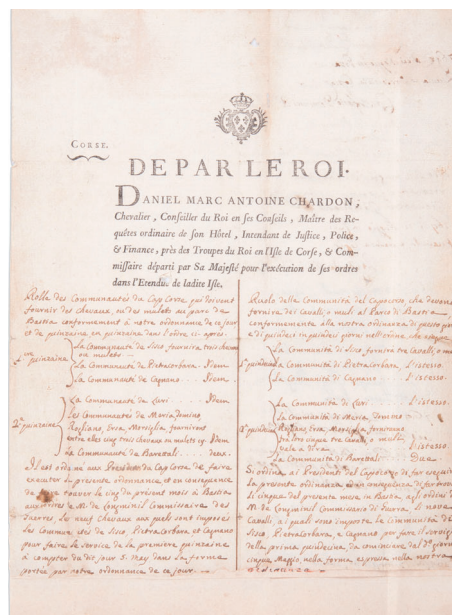 CORSE.
DE PAR LE ROI.
DANIEL MARC ANTOINE CHARDON,
Chevalier, Conseiller du Roi en ses Conseils, Maître des Re-
quêtes ordinaire de son Hôtel, Intendant de Justice, Police,
& Finance, près des Troupes du Roi en l'Isle de Corse, & Com-
missaire départi par Sa Majesté pour l'exécution de ses ordres
dans l'Etendue de ladite Isle,
Rolle des Communautés du Cap Corse qui doivent
fournir des chevaux, ou des mulets au parc de
Bastia conformement à notre ordonnance de ce jour
et de quinzaine en quinzaine dans l'ordre ci-après.
1re quinzaine
La Communauté de Sisco fournira trois chevaux
ou mulets
La Communauté de Pietracorbara Idem
La Communauté de Cagnano Idem.
2e quinzaine
La Communauté de Luri Idem
Les Communautés de Meria, Tomino,
Rogliano, Ersa, Morsiglia fourniront
entre elles cinq trois chevaux ou mulets cy Idem
La Communauté de Barettali deux.
Il est ordonné aux Presidens du Cap Corse de faire
executer la presente ordonnance et en consequence
de faire trouver le cinq du présent mois à Bastia
aux ordres de M. de Commissaire des
Guerres les neuf chevaux aux quels sont imposés
les Communautés de Sisco, Pietracorbara, et Cagnano
pour faire le service de la premiere quinzaine
à compter du dit jour 5. May dans la forme
portée par notre ordonnance de ce jour.
Ruolo delle Communità del Capocorso, che devono
fornire dei Cavalli o muli al Parco di Bastia
conformemente alla nostra ordinanza di questo
e di quindeci in quindeci giorni nell'ordine, che
1a
La Communità di Sisco fornira tre Cavalli, o
La Communità di Pietracorbara, L'istesso.
La Communità di Cagnano L'istesso
2a
La Communità di Luri L'istesso
La Communità di Meria, Tomino
Rogliano, Ersa, Morsiglia forniranno
tra loro cinque tre Cavalli o muli
L'istesso
La Communità di Barettali Due
Si ordina ai Presidenti del Capocorso di far eseguire
la presente ordinanza
li cinque del presente mese in Bastia agli ordini
M. de Commissario di Guerra, li nove
Cavalli, ai quali sono imposte le Communità di
Sisco, Pietracorbara, e Cagnano per fare il servizio
della prima quindecina, da cominciare dal do giorno
cinque Maggio nella forma espressa nella nostra
ordinanza